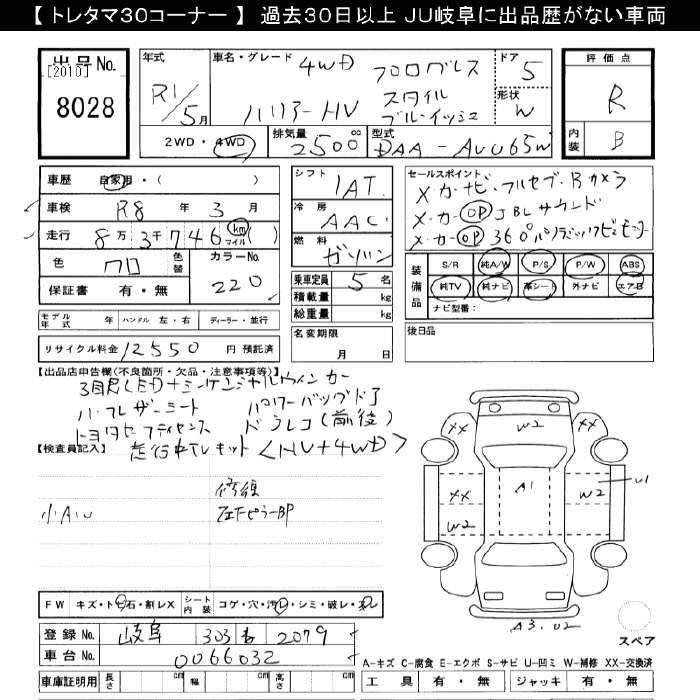 【 トレタマ30コーナー 】 過去30日以上 JU岐阜に出品歴がない車両
出品No.
[2010]
8028
年式
R1/5月
車名・グレード
4WD プログレス
ハリアーHV スタイル
ブルーイッシュ
ドア 5
形状 W
2WD・4WD
排気量 2500 cc
型式 DAA-AVU65W
評価点
R
内装 B
車歴 自家用・( )
車検 R8 年 3 月
走行 8万3千746 km マイル ( )
色 クロ 色替
カラーNo. 220
保証書 有・無
シフト 1AT
冷房 AAC
燃料 ガソリン
乗車定員 5 名
積載量 kg
総重量 kg
セールスポイント
メーカーナビ・フルセグ・Bカメラ
メーカーOP JBLサウンド
メーカーOP 360°パノラミックビューモニター
装備品
S/R 純A/W P/S P/W ABS
純TV 純ナビ 革シート 外ナビ エアB
ナビ型番:
モデル年式 年 ハンドル 左・右 ディーラー・並行
リサイクル料金 12550 円 預託済
名変期限
月 日
後日品
【出品店申告欄(不良箇所・欠品・注意事項等)】
3眼LED+シーケンシャルウィンカー
ハーフレザーシート パワーバックドア
トヨタセーフティセンス ドラレコ(前後)
走行中TVキット <HV+4WD>
【検査員記入】
修復
小AU 左下ピラーBP
XX W2 XX
A1 U1
XX W2
W2
A3.U2
スペア
FW キズ・トビ石・割レX シート内装 コゲ・穴・汚レ・シミ・破レ・スレ
登録No. 岐阜 303 も 2079
車台No. 0066032
車庫証明用 長さ cm 幅 cm 高さ cm
A-キズ C-腐食 E-エクボ S-サビ U-凹ミ W-補修 XX-交換済
工具 有・無 ジャッキ 有・無